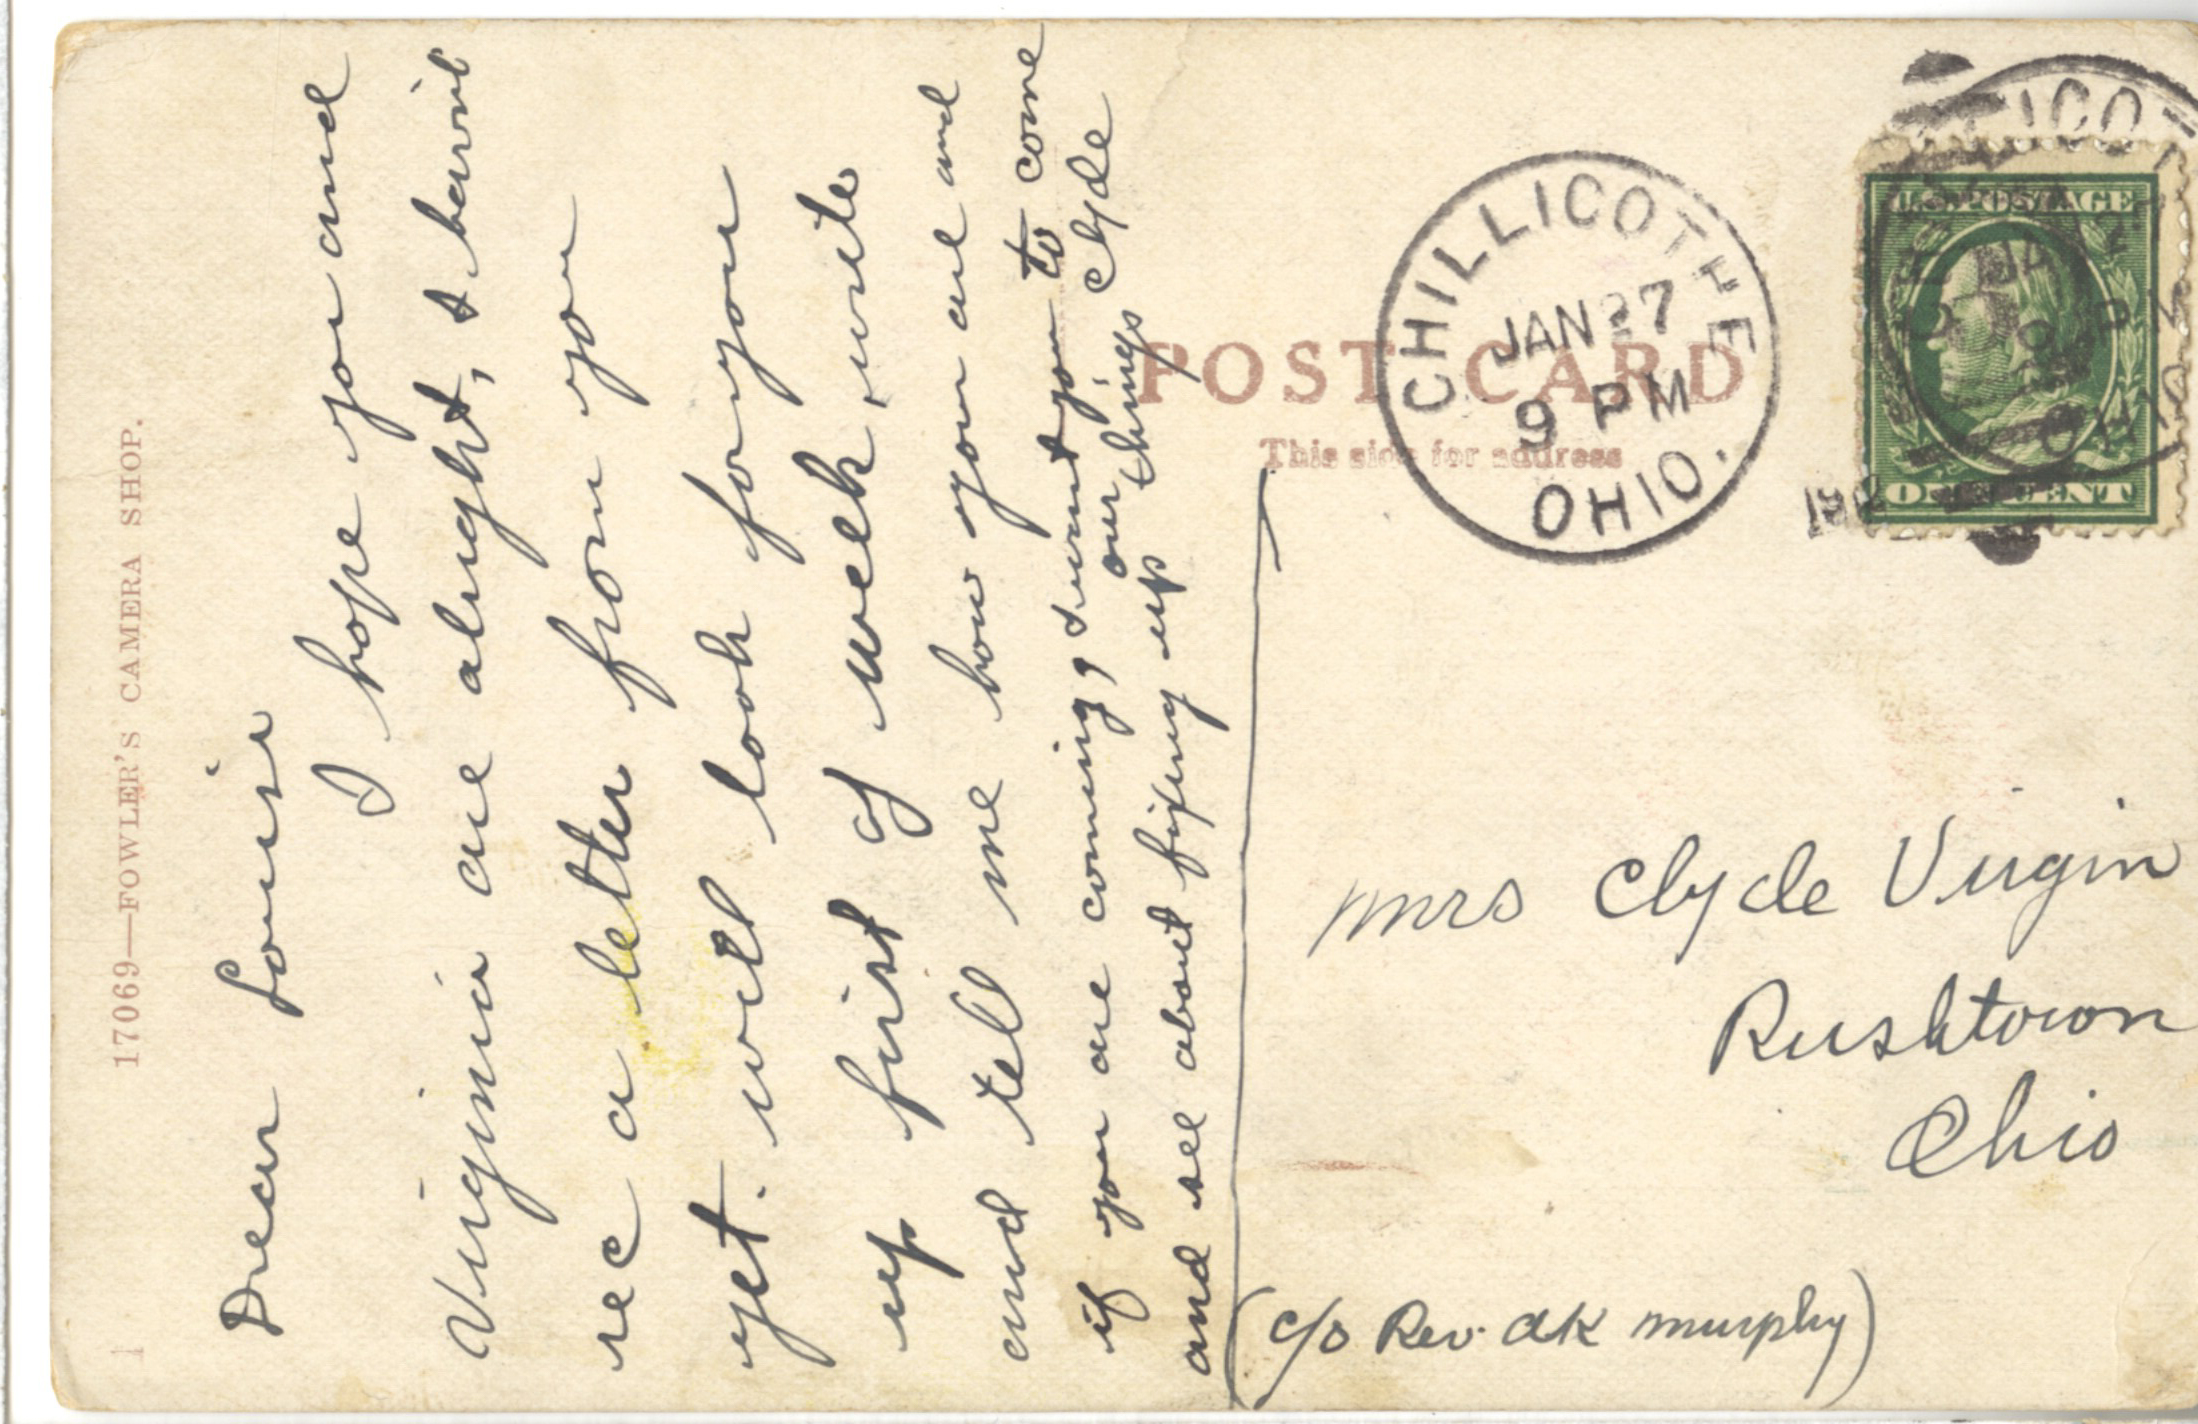 17069—FOWLER'S CAMERA SHOP.
1
Dear Louise
I hope you and
Virginia are alright, I havint
rec a letter from you
yet. will look for you
up first of week, write
and tell me how you are and
if you are coming, I want you to come
and see about fixing up our things Clyde
POST CARD
This side for address
CHILLICOTHE
JAN 27
9 PM
OHIO.
U.S. POSTAGE
ONE CENT
Mrs Clyde Virgin
Rushtown
Ohio
(c/o Rev. AK Murphy)